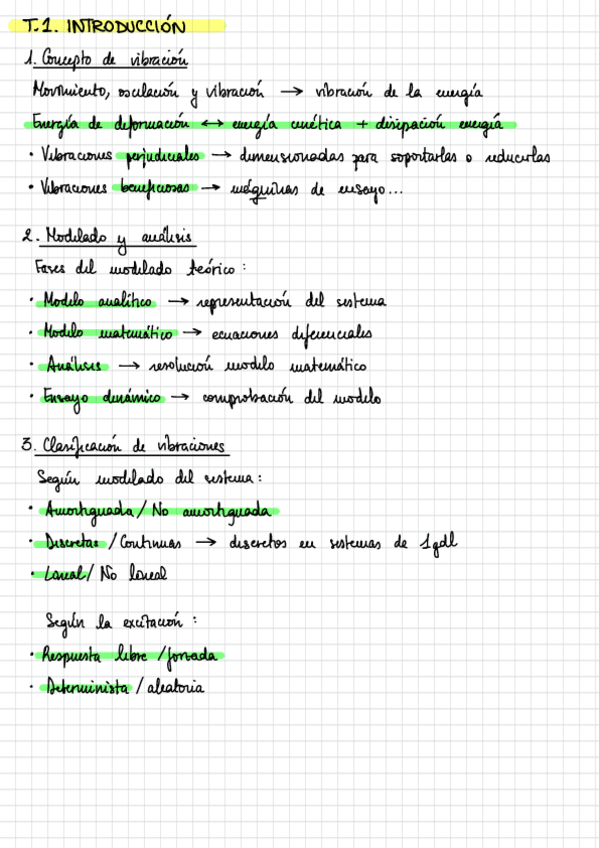 T.1. INTRODUCCIÓN
1. Concepto de vibración
Movimiento, oscilación y vibración → vibración de la energía
Energía de deformación ↔ energía cinética + disipación energía
· Vibraciones perjudiciales → dimensionadas para soportarlas o reducirlas
· Vibraciones beneficiosas → máquinas de ensayo...
2. Modelado y análisis
Fases del modelado teórico:
· Modelo analítico → representación del sistema
· Modelo matemático → ecuaciones diferenciales
· Análisis → resolución modelo matemático
· Ensayo dinámico → comprobación del modelo
3. Clasificación de vibraciones
Según modelado del sistema:
· Amortiguada / No amortiguada
· Discretas / Continuas → discretos en sistemas de 1gdl
· Lineal / No lineal
Según la excitación:
· Respuesta libre / forzada
· Determinista / aleatoria